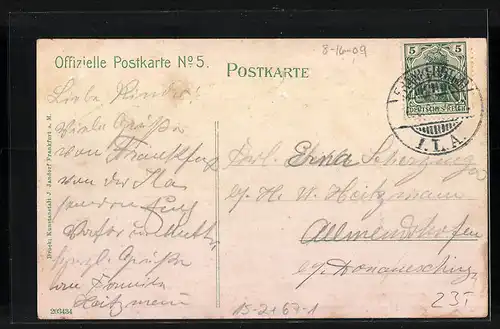 8-16-09
Offizielle Postkarte Nº 5.
POSTKARTE
5 5
DEUTSCHES REICH
I.L.A.
Liebe Kinder!
Viele Grüße
von Frankfurt
von der
Vater u. Mutter
Herzl. Grüße
von Familie
Heitzmann
Frl. Erika
b/ H. W. Heitzmann
Allmendshofen
b/ Donaueschingen
Druck: Kunstanstalt J. Jandorf Frankfurt a. M.
203434
15-2-67-1
235